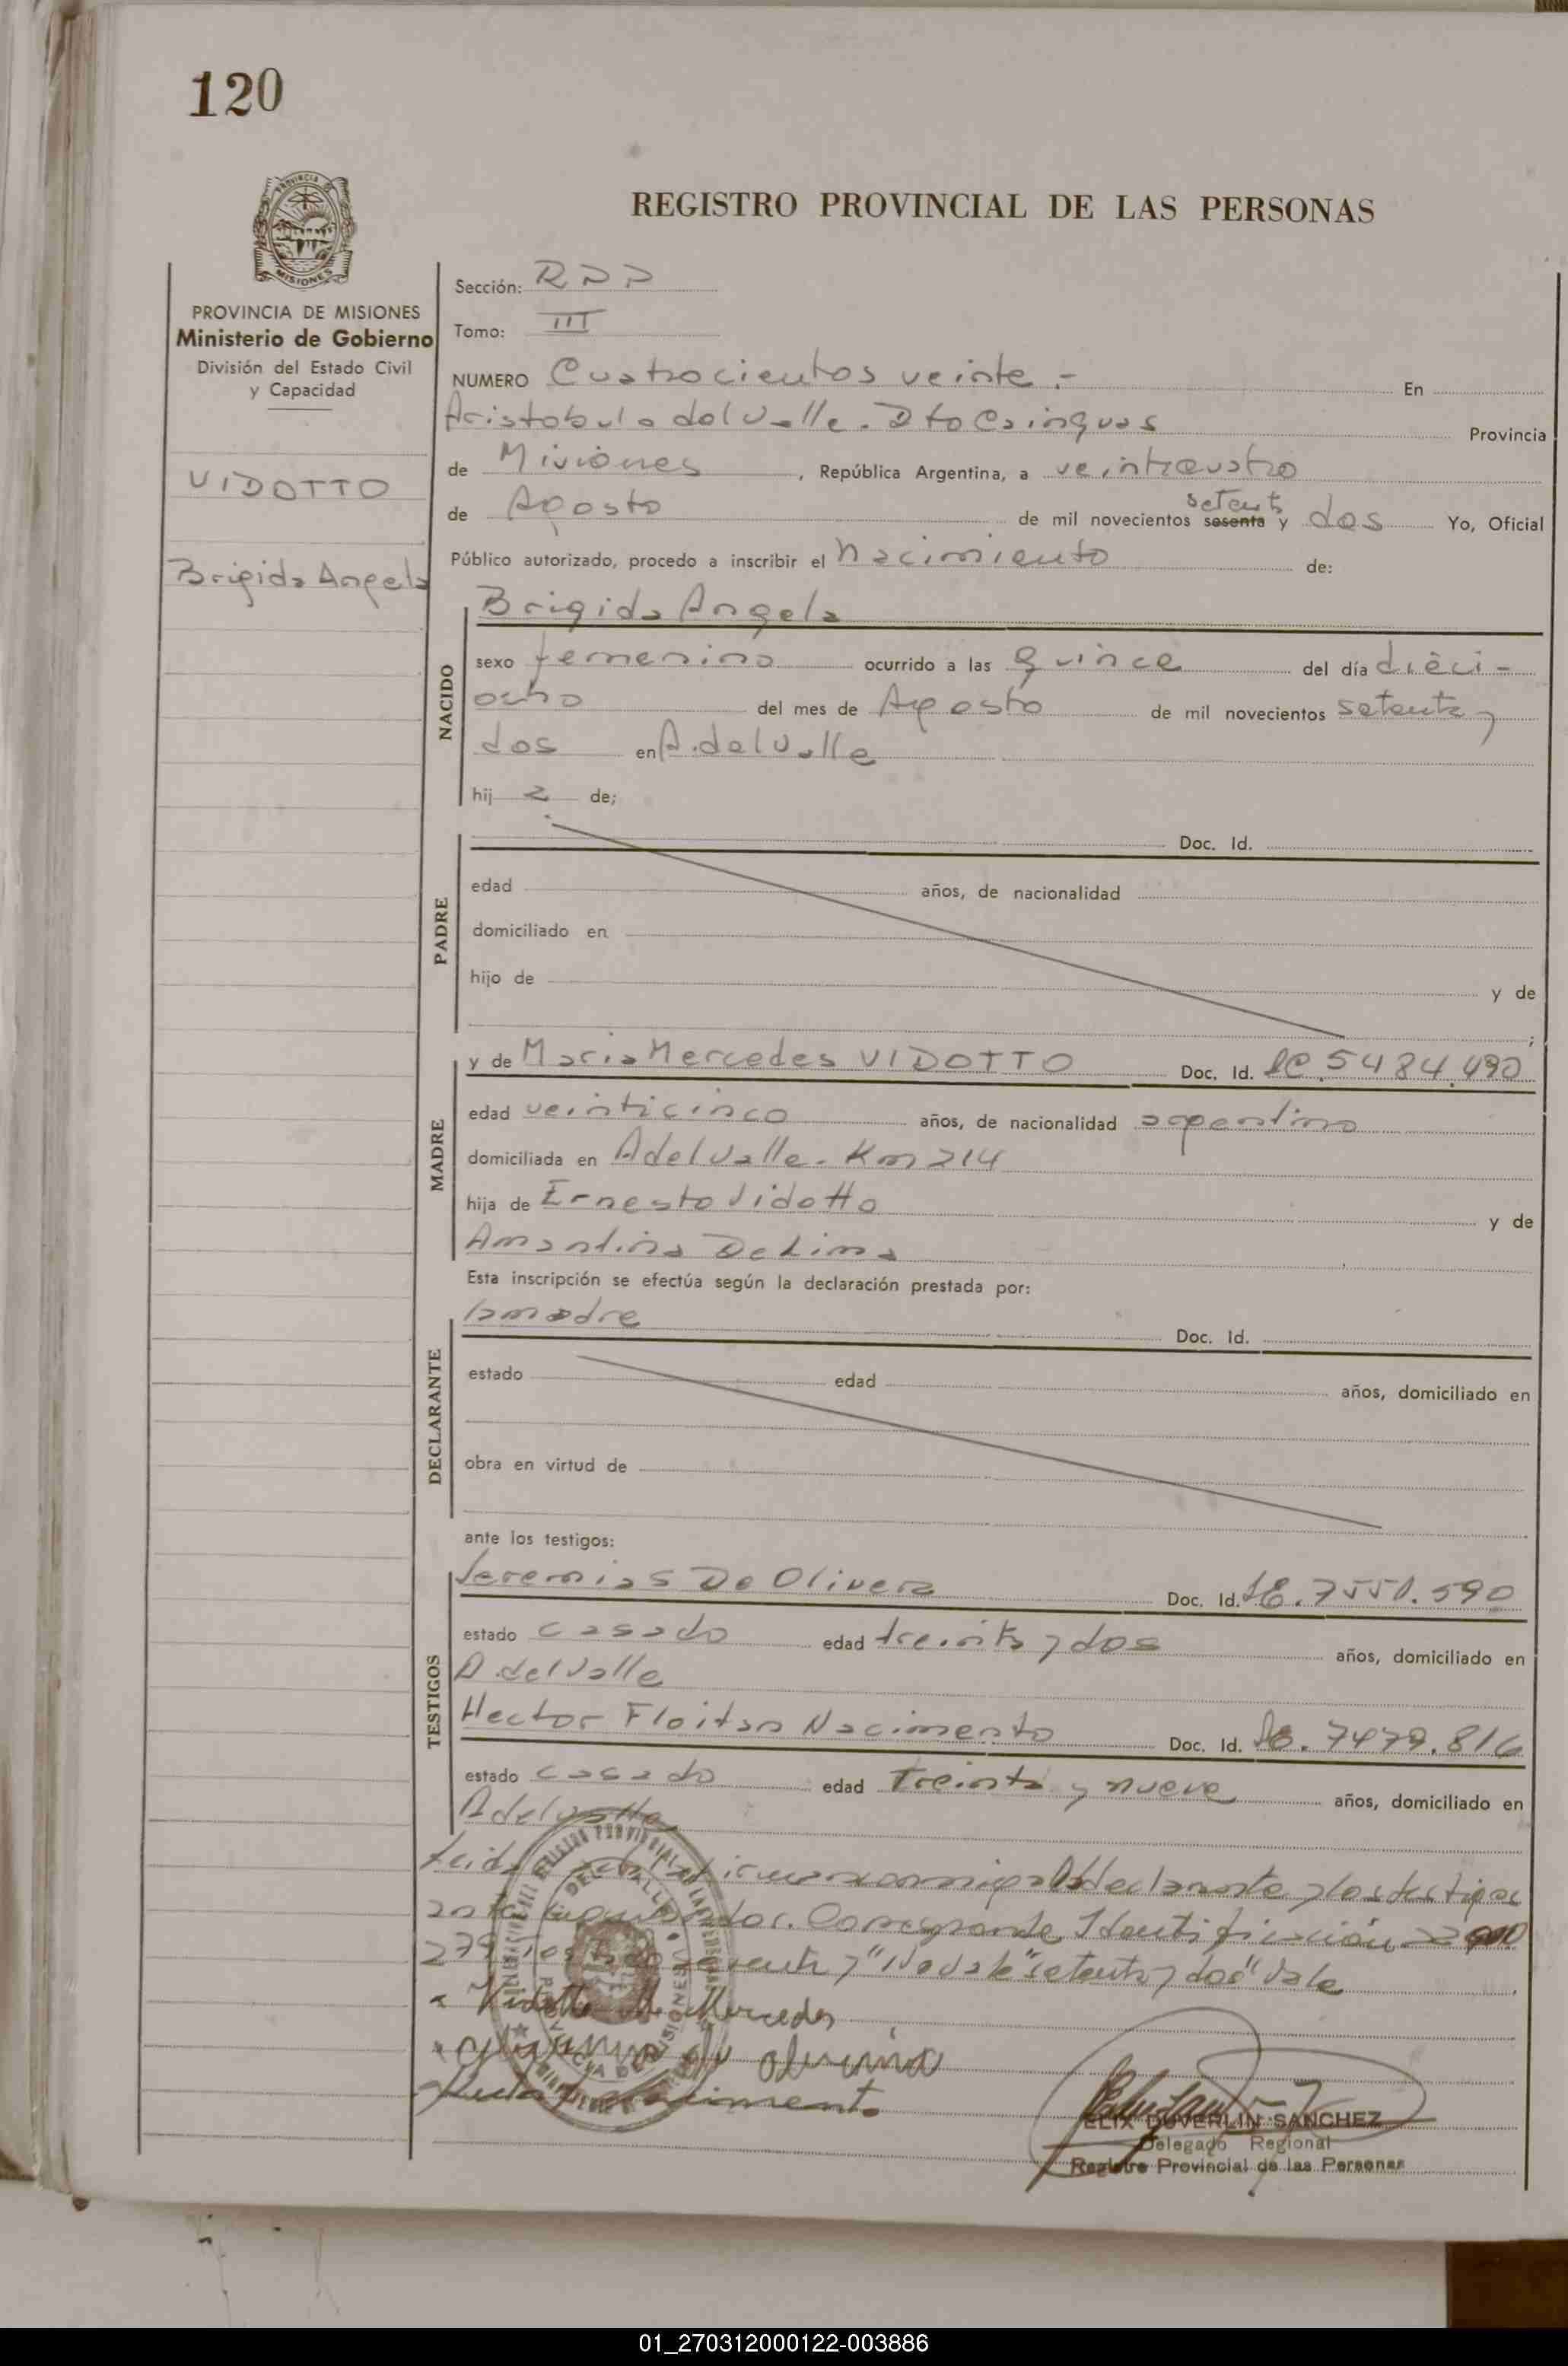 120
REGISTRO PROVINCIAL DE LAS PERSONAS
MISIONES
PROVINCIA DE MISIONES
Ministerio de Gobierno
División del Estado Civil
y Capacidad
VIDOTTO
Brigida Angela
Sección: RPP
Tomo: III
NUMERO Cuatrocientos veinte.- En
Aristobulo del Valle. Dto Cainguas Provincia
de Misiones, República Argentina, a veinticuatro
de Agosto de mil novecientos sesenta setenta y dos Yo, Oficial
Público autorizado, procedo a inscribir el nacimiento de:
NACIDO
Brigida Angela
sexo femenino ocurrido a las quince del día dieci-
ocho del mes de Agosto de mil novecientos setenta y
dos en A. del Valle
hij a de;
PADRE
Doc. Id.
edad años, de nacionalidad
domiciliado en
hijo de y de
;
MADRE
y de Maria Mercedes VIDOTTO Doc. Id. LC. 5484.490
edad veinticinco años, de nacionalidad argentina
domiciliada en A del Valle. Km 214
hija de Ernesto Vidotto y de
Amantina De Lima
Esta inscripción se efectúa según la declaración prestada por:
DECLARANTE
la madre Doc. Id.
estado edad años, domiciliado en
obra en virtud de
ante los testigos:
TESTIGOS
Jeremias De Olivera Doc. Id. LE. 7550.590
estado casado edad treinta y dos años, domiciliado en
A del Valle
Hector Floitan Nacimento Doc. Id. 7479.816
estado casado edad treinta y nueve años, domiciliado en
A del Valle
Leida declarante y los testigos
ante Corresponde Identificación
279 "setenta y dos" Vale
Vidotto M. Mercedes
Nacimento
ELIX DUVERLIN SANCHEZ
Delegado Regional
Registro Provincial de las Personas
01_270312000122-003886